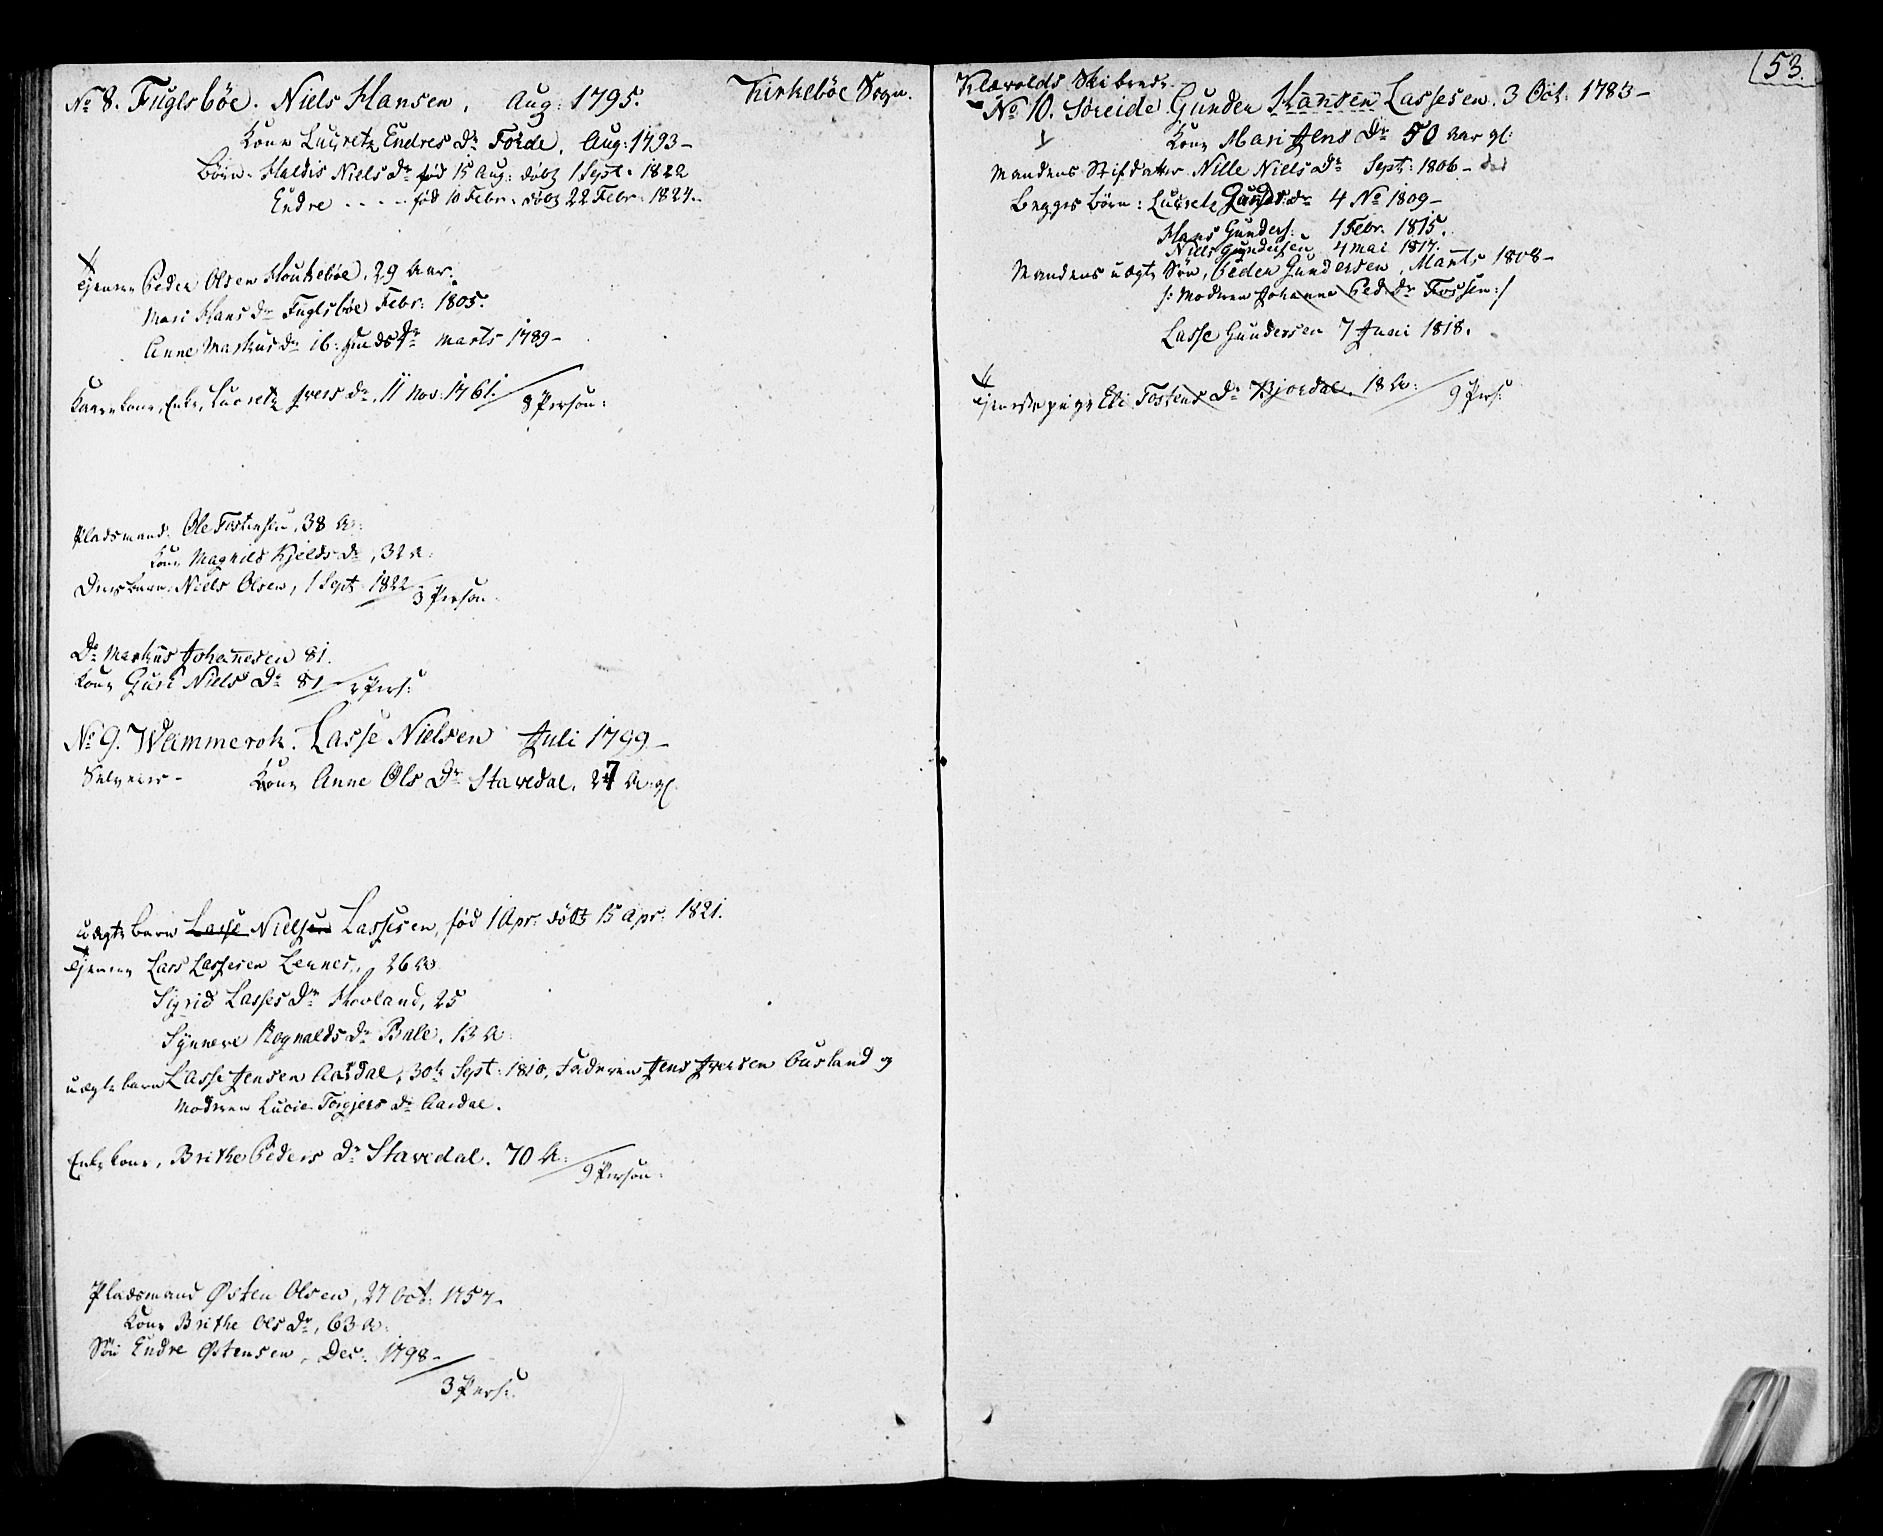 No 8. Fuglsböe. Niels Hansen, Aug: 1795. Kirkebòe Sogn.
Kone Lucretz Endres Dr Förde, Aug: 1793 –
Börn. Maldis Niels Dr fød 15 Aug: døbt 1 Sept. 1822
Endre - - - - fød 10 Febr. døbt 22 Febr. 1824.
Tjenere Peder Olsen 29 Aar.
Mari Hans Dr Fuglsböe Febr: 1805.
Anne Markus Dr ib: Marts 1789 –
Kaarekone, Enke, Lucretz Ivers Dr, 11 Nov: 1761. 8 Person:
Pladsmand. Ole Tostensen, 38 A:
Kone Magnild Kjelds Dr, 32 A:
Deres barn: Niels Olsen, 1 Sept. 1822 3 Person.
Do Markus Johanesen 81.
Kone Guri Niels Dr 81 2 Pers:
No 9. Wammerok. Lasse Nielsen Juli 1799 –
Selveier – Kone Anne Ols Dr Stavedal. 27 A: gl.
uægte barn Lasse Nielsen Lassesen, fød 1 Apr: døbt 15 Apr: 1821.
Tjenere Lars Lassesen 26 A
Sigrid Lasses Dr Hovland, 25
Synneve Rognalds Dr 13 A:
uægte barn Lasse Jensen Aardal, 30te Sept: 1810, Faderen Jens Iversen Ousland og
Moderen Lucie Torgjers Dr Aardal.
Enkekone, Brithe Peders Dr Stavedal. 70 A: 9 Person:
Pladsmand Østen Olsen, 27 Oct: 1757 –
Kone Brithe Ols Dr, 63 A:
Sön Endre Østensen, Dec: 1798 –
3 Pers:
53.
Klævolds Skibrede.
No 10. Söreide Gunder Hansen Lassesen. 3 Oct. 1783 –
Kone Mari Jens Dr 50 Aar gl:
Mandens Stifdatter Nille Niels Dr Sept: 1806 –
Begges Börn: Lucretz Gunders Dr 4 No 1809 –
Hans Gunders: 1 Febr. 1815.
Niels Gundersen 4 Mai 1817.
Mandens uægte Sön, Peder Gundersen, Marts 1808 –
/: Moderen Johanne Ped: Dr Fossen :/
Lasse Gundersen 7 Juni 1818.
Tjenestepige Eli Tostens Dr Bjordal. 18 A: 9 Pers: